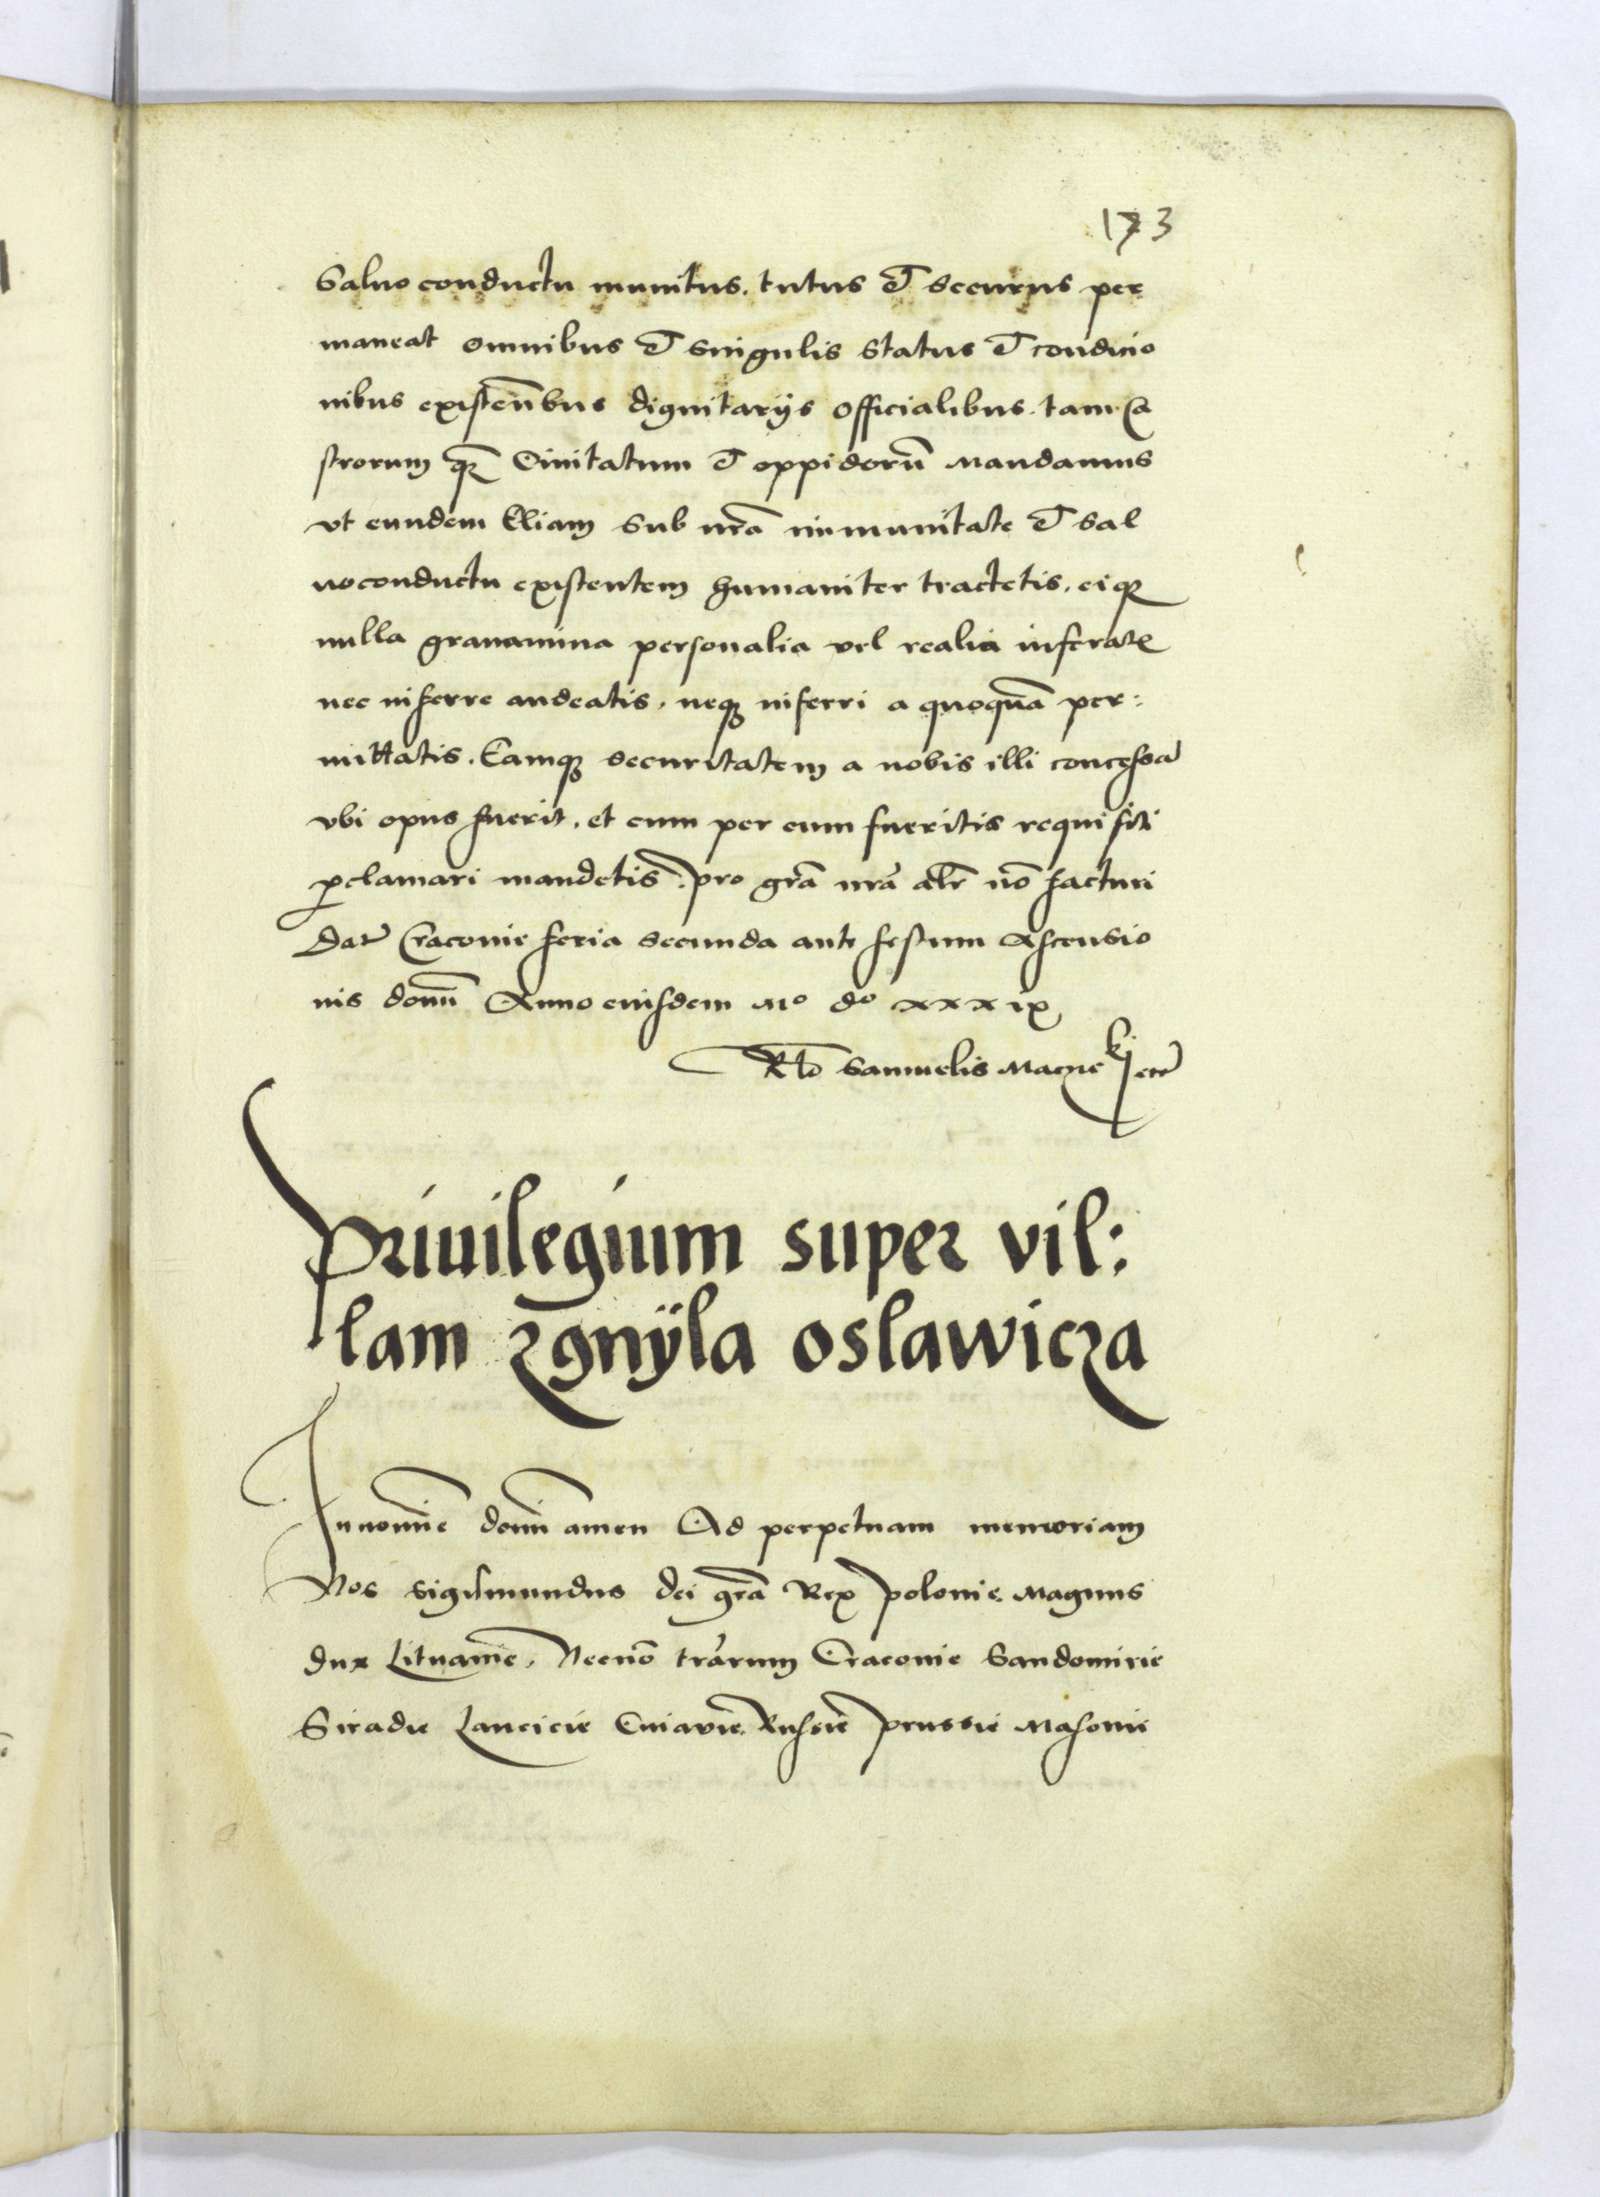 173
Saluo conductu munitus. tutus et securus per
maneat omnibus et singulis status et condicio
nibus existen̄tibus dignitarijs officialibus. tam Ca
strorum qȝ Ciuitatum et oppidorū Mandamus
vt eundem Eliam sub nr̄a immunitate et sal
uoconductu existentem humaniter tractetis. eiqȝ
nulla grauamina personalia vel realia inferatȩ
nec inferre audeatis, neqȝ inferri a quoquā per:
mittatis. Eamqȝ securitatem a nobis illi concessā
vbi opus fuerit. et cum per eum fueritis requisiti
ꝓclamari mandetis. pro grā nr̄a alr̄ nō facturi
Dat̄ Cracouie feria secunda ante festum Ascensio
nis domī Anno eiusdem Mº dº xxxix
Rlō Samuelis Macieȷ̄kj etc̄
Priuilegium super vil:
lam zgnÿla oslawicza
In nomīe domī amen Ad perpetuam memoriam
Nos sigismundus dei grā Rex polonie Magnus
dux Lituaniē, Necnō trārum Cracouie Sandomirie
Siradie Lancicie Cuiavie Russie prussie Masouie